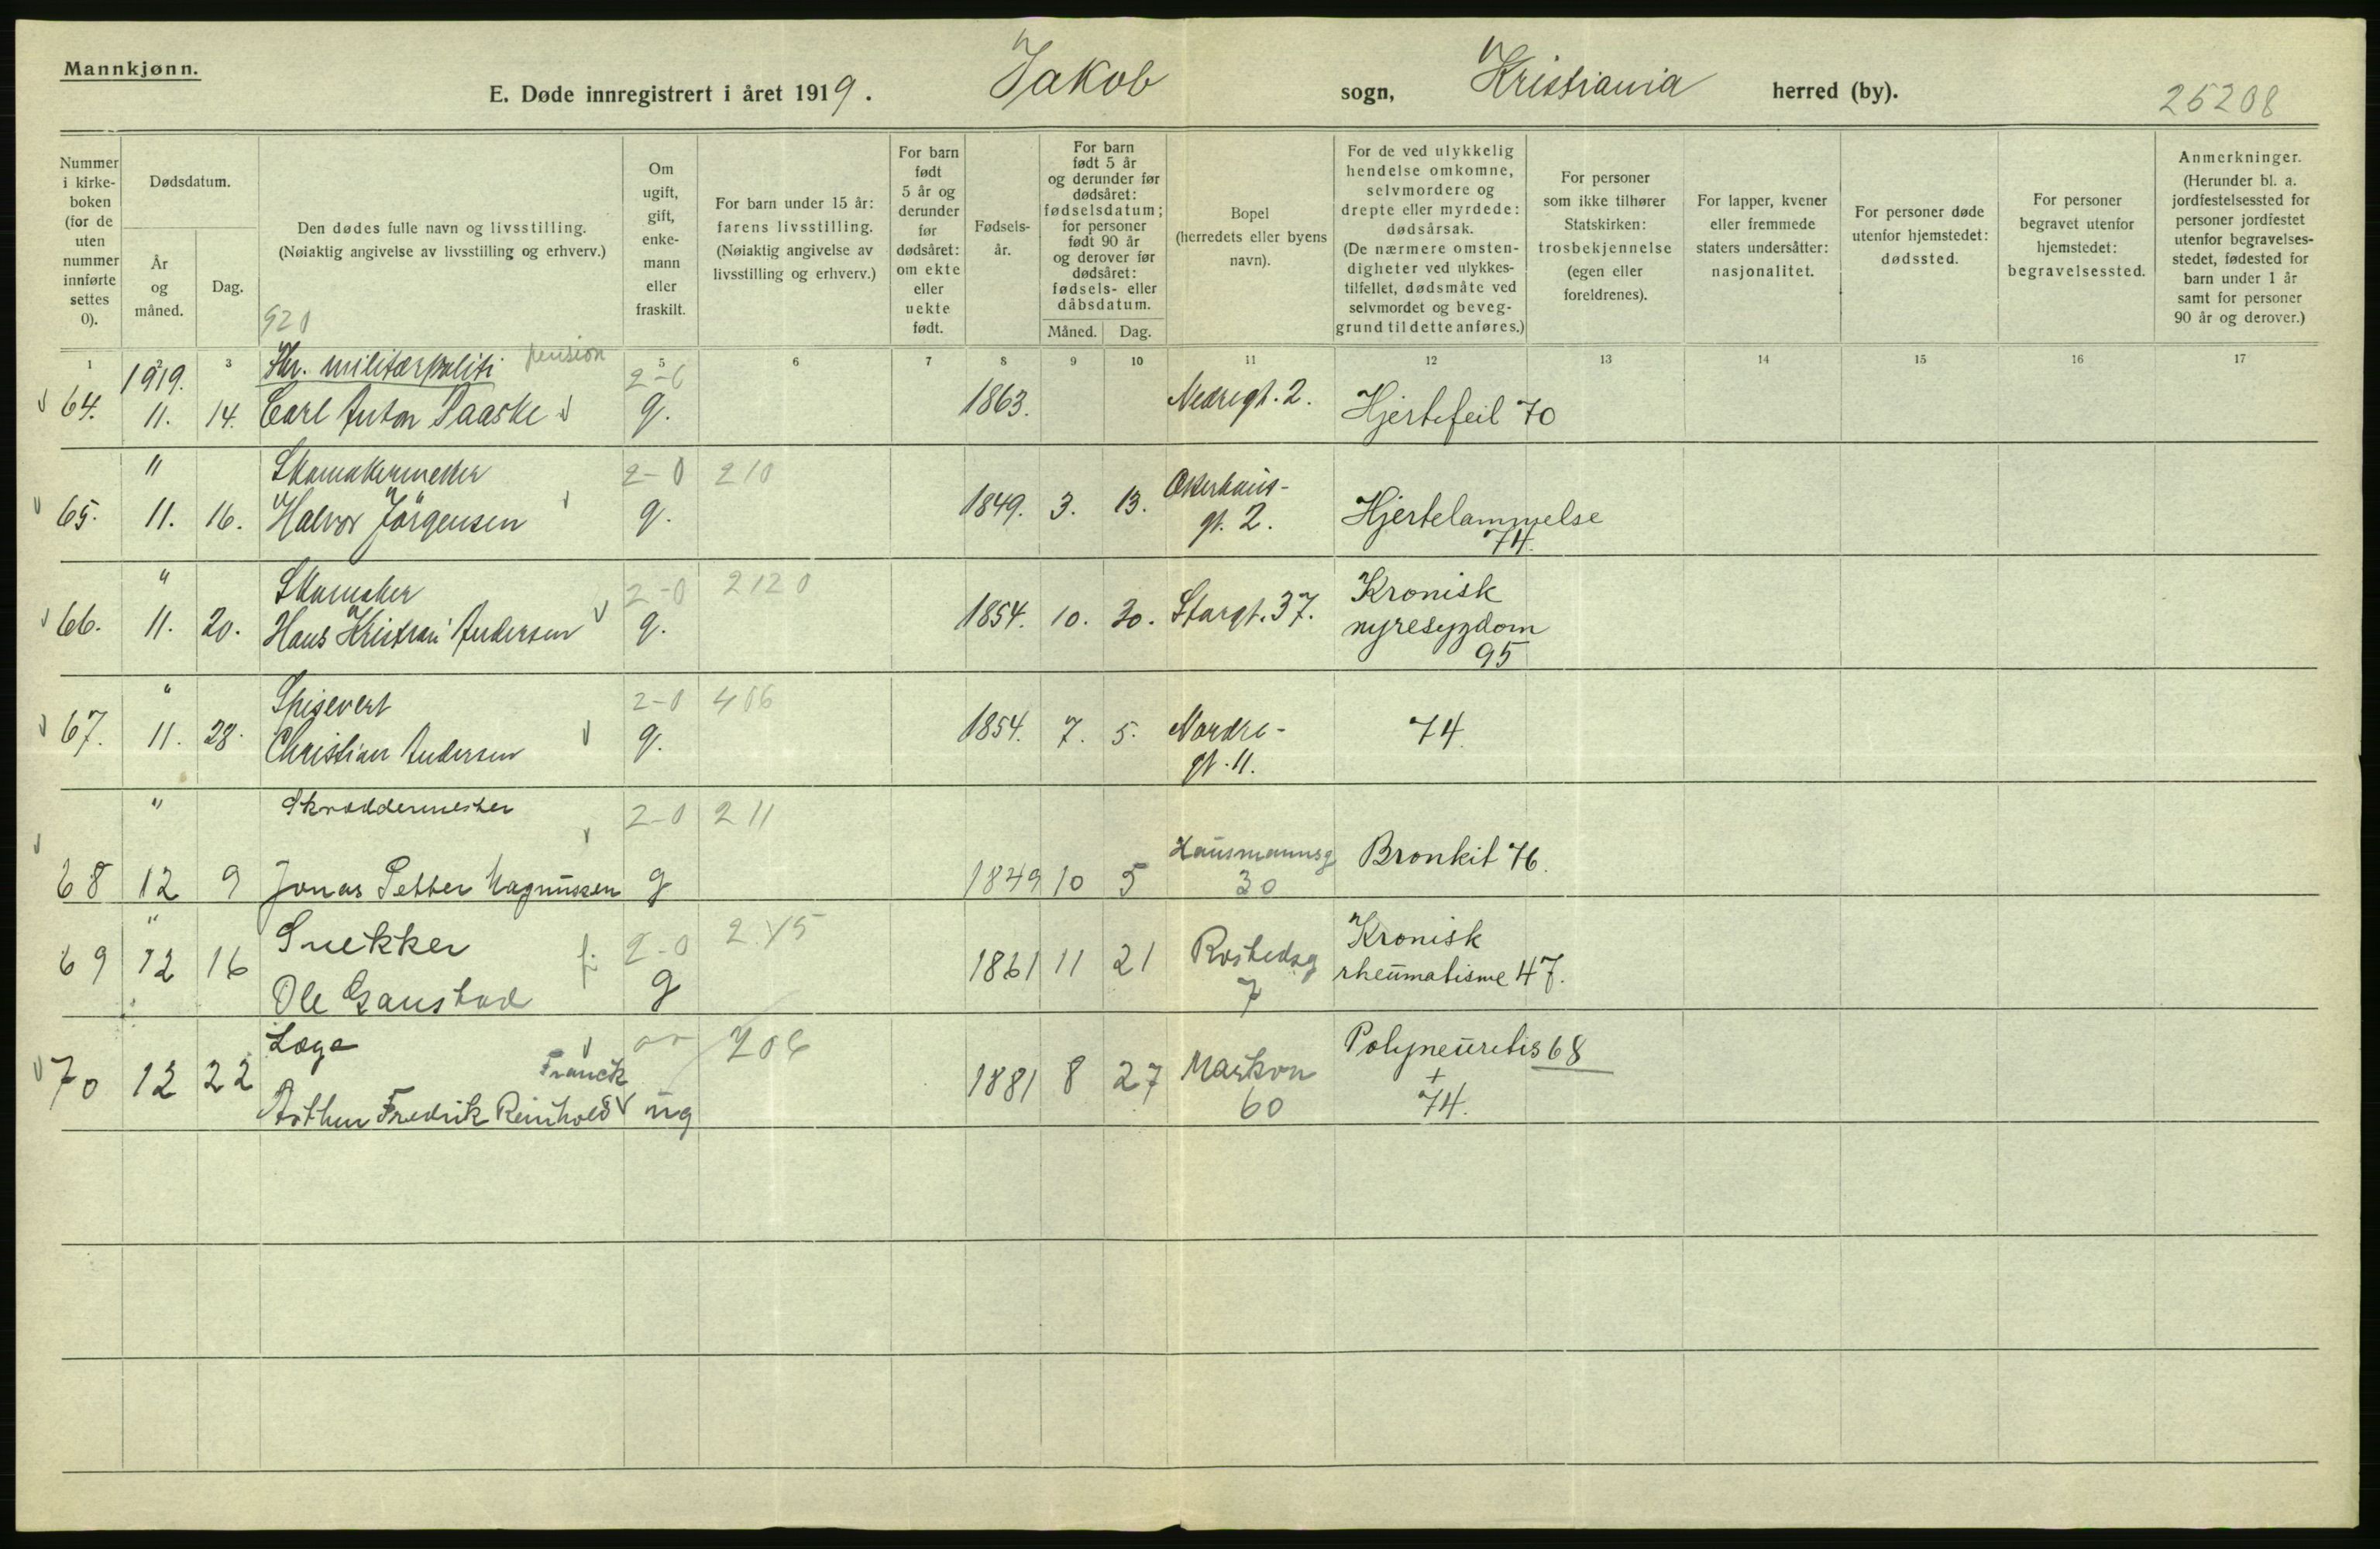 Mannkjønn.
E. Døde innregistrert i året 1919. Jakob sogn, Kristiania herred (by). 25208
Nummer i kirke-boken (for de uten nummer innførte settes 0).
Dødsdatum.
År og måned.
Dag.
Den dødes fulle navn og livsstilling.
(Nøiaktig angivelse av livsstilling og erhverv.)
Om ugift, gift, enke-mann eller fraskilt.
For barn under 15 år: farens livsstilling.
(Nøiaktig angivelse av livsstilling og erhverv.)
For barn født 5 år og derunder før dødsåret: om ekte eller uekte født.
Fødsels-år.
For barn født 5 år og derunder før dødsåret: fødselsdatum; for personer født 90 år og derover før dødsåret: fødsels- eller dåbsdatum.
Måned. Dag.
Bopel (herredets eller byens navn).
For de ved ulykkelig hendelse omkomne, selvmordere og drepte eller myrdede: dødsårsak.
(De nærmere omsten-digheter ved ulykkes-tilfellet, dødsmåte ved selvmordet og beveg-grund til dette anføres.)
For personer som ikke tilhører Statskirken: trosbekjennelse (egen eller foreldrenes).
For lapper, kvener eller fremmede staters undersåtter: nasjonalitet.
For personer døde utenfor hjemstedet: dødssted.
For personer begravet utenfor hjemstedet: begravelsessted.
Anmerkninger.
(Herunder bl. a. jordfestelsessted for personer jordfestet utenfor begravelses-stedet, fødested for barn under 1 år samt for personer 90 år og derover.)
920
1 3 5 6 7 8 9 10 11 12 13 14 15 16 17
1919. militærpoliti pension
64. 11. 14. Carl Anton Paaske g. 1863. Nedregt. 2. Hjertefeil 70
" Skomakermester 2-0 210
65. 11. 16. Halvor Jörgensen g. 1849. 3. 13. Akerhus-gt. 2. Hjertelammelse 74.
" Skomaker 2-0 2120
66. 11. 20. Hans Kristian Andersen g. 1854. 10. 30. Storgt. 37. Kronisk nyresygdom 95
" Spisevert 2-0 406
67. 11. 28. Christian Andersen g. 1854. 7. 5. Nordre-gt. 11. 74.
" Skræddermester 2-0 211
68 12 9 Jonas Petter Magnussen g 1849 10 5 Hausmannsg 30 Bronkit 76.
" Snekker 2-0 245
69 12 16 Ole Gaustad g 1861 11 21 Rostedsg 7 Kronisk rheumatisme 47.
Læge 206
70 12 22 Arthur Fredrik Reinhold Franck ug 1881 8 27 Markvn 60 Polyneuritis 68 + 74.